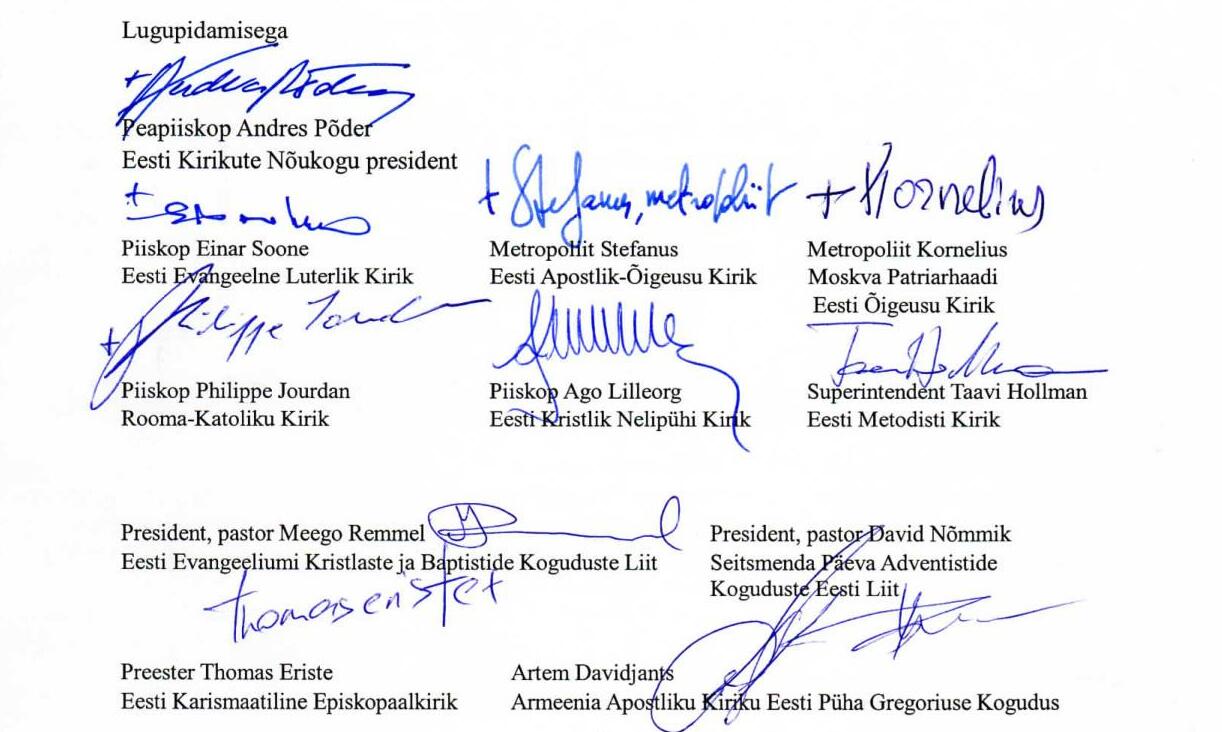 Lugupidamisega
+ Andres Põder
Peapiiskop Andres Põder
Eesti Kirikute Nõukogu president
+ Stefanus, metropoliit
+ Kornelius
Piiskop Einar Soone
Eesti Evangeelne Luterlik Kirik
Metropoliit Stefanus
Eesti Apostlik-Õigeusu Kirik
Metropoliit Kornelius
Moskva Patriarhaadi
Eesti Õigeusu Kirik
+ Philippe Jourdan
Piiskop Philippe Jourdan
Rooma-Katoliku Kirik
Piiskop Ago Lilleorg
Eesti Kristlik Nelipühi Kirik
Superintendent Taavi Hollman
Eesti Metodisti Kirik
President, pastor Meego Remmel
Eesti Evangeeliumi Kristlaste ja Baptistide Koguduste Liit
President, pastor David Nõmmik
Seitsmenda Päeva Adventistide
Koguduste Eesti Liit
Preester Thomas Eriste
Eesti Karismaatiline Episkopaalkirik
Artem Davidjants
Armeenia Apostliku Kiriku Eesti Püha Gregoriuse Kogudus